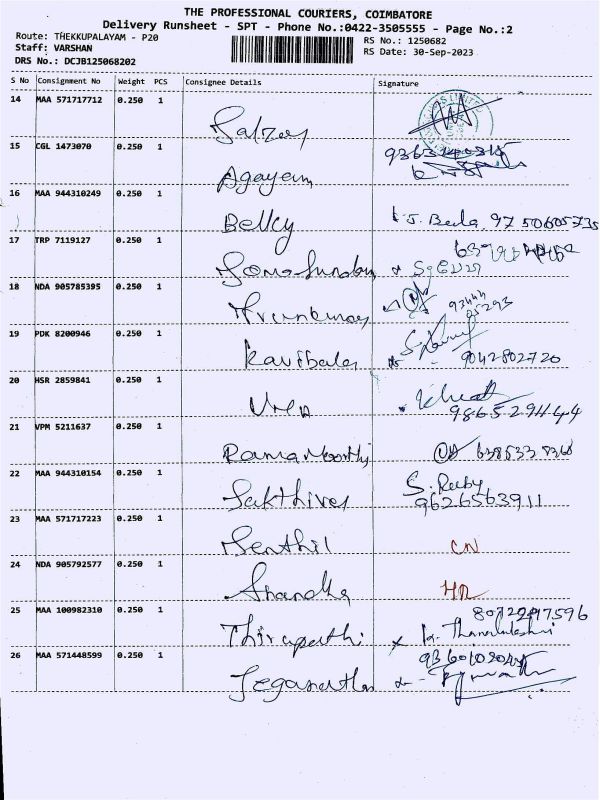 THE PROFESSIONAL COURIERS, COIMBATORE
Delivery Runsheet - SPT - Phone No.:0422-3505555 - Page No.:2
Route: THEKKUPALAYAM - P20
RS No.: 1250682
Staff: VARSHAN
RS Date: 30-Sep-2023
DRS No.: DCJB125068202
S No Consignment No Weight PCS Consignee Details Signature
14 MAA 571717712 0.250 1
15 CGL 1473070 0.250 1
Agayam
16 MAA 944310249 0.250 1
Belky J. Beula, 9750605735
17 TRP 7119127 0.250 1
Somasundaram
18 NDA 905785395 0.250 1
93444
05293
19 PDK 8200946 0.250 1
Kavibala 9042802720
20 HSR 2859841 0.250 1
Uma 9865294444
21 VPM 5211637 0.250 1
Ramamoorthi
22 MAA 944310154 0.250 1
Sakthivel S. Ruby
9626563911
23 MAA 571717223 0.250 1
Senthil CN
24 NDA 905792577 0.250 1
Anandha
25 MAA 100982310 0.250 1
Thirupathi
26 MAA 571448599 0.250 1
Jeganathan